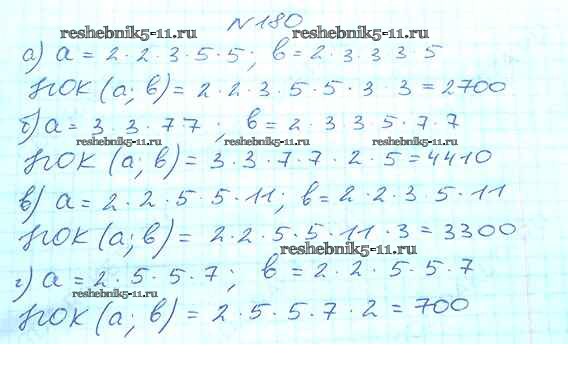 №180
reshebnik5-11.ru reshebnik5-11.ru
а) a = 2·2·3·5·5; b = 2·3·3·3·5
НОК (a; b) = 2·2·3·5·5·3·3 = 2700
б) a = 3·3·7·7; b = 2·3·3·5·7·7
reshebnik5-11.ru reshebnik5-11.ru reshebnik5-11.ru
НОК (a; b) = 3·3·7·7·2·5 = 4410
в) a = 2·2·5·5·11; b = 2·2·3·5·11
НОК (a; b) = 2·2·5·5·11·3 = 3300
reshebnik5-11.ru
г) a = 2·5·5·7; b = 2·2·5·5·7
reshebnik5-11.ru
НОК (a; b) = 2·5·5·7·2 = 700